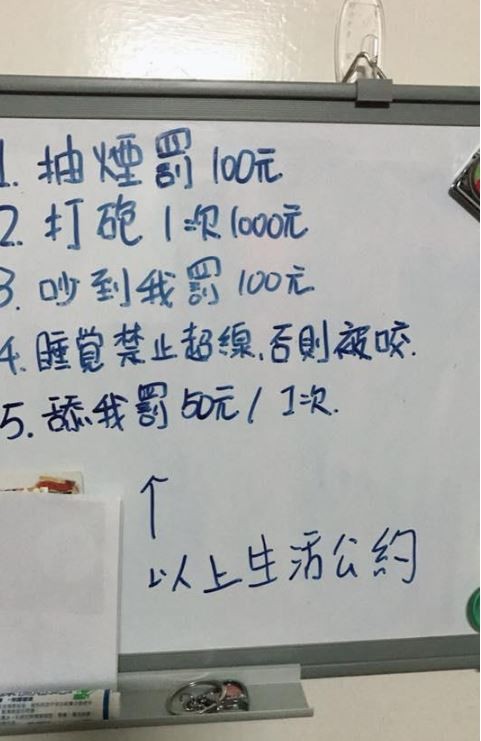 1. 抽煙罰 100元
2. 打砲 1次 1000元
3. 吵到我罰 100元
4. 睡覺禁止超線,否則被咬.
5. 舔我罰 50元 / 1次.
↑
以上生活公約